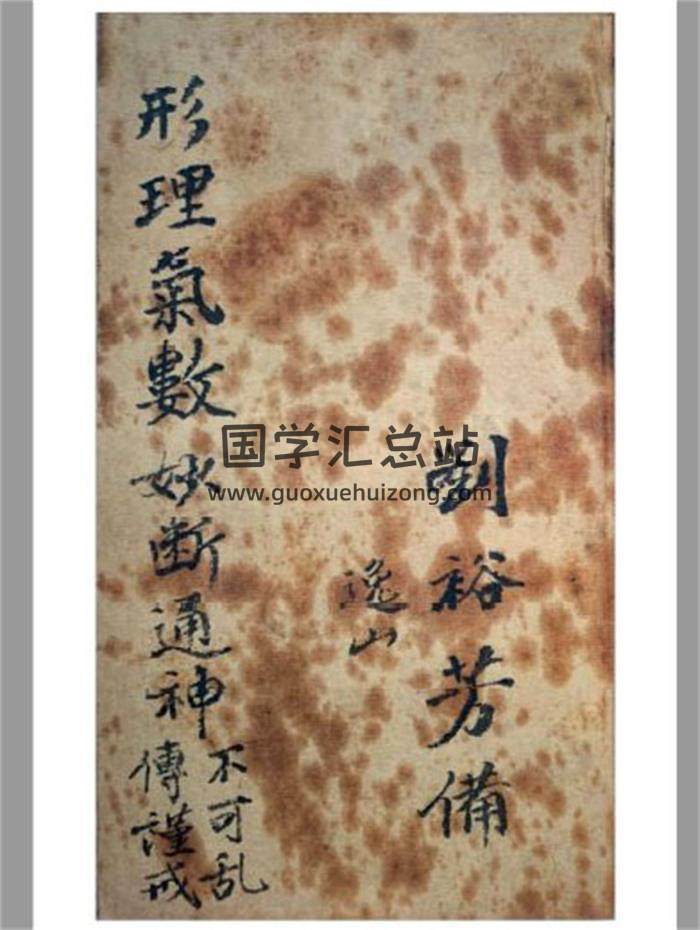 劉裕芳備
逸山
形理氣數妙断通神
不可乱
傳謹戒
国学汇总站
www.guoxuehuizong.com